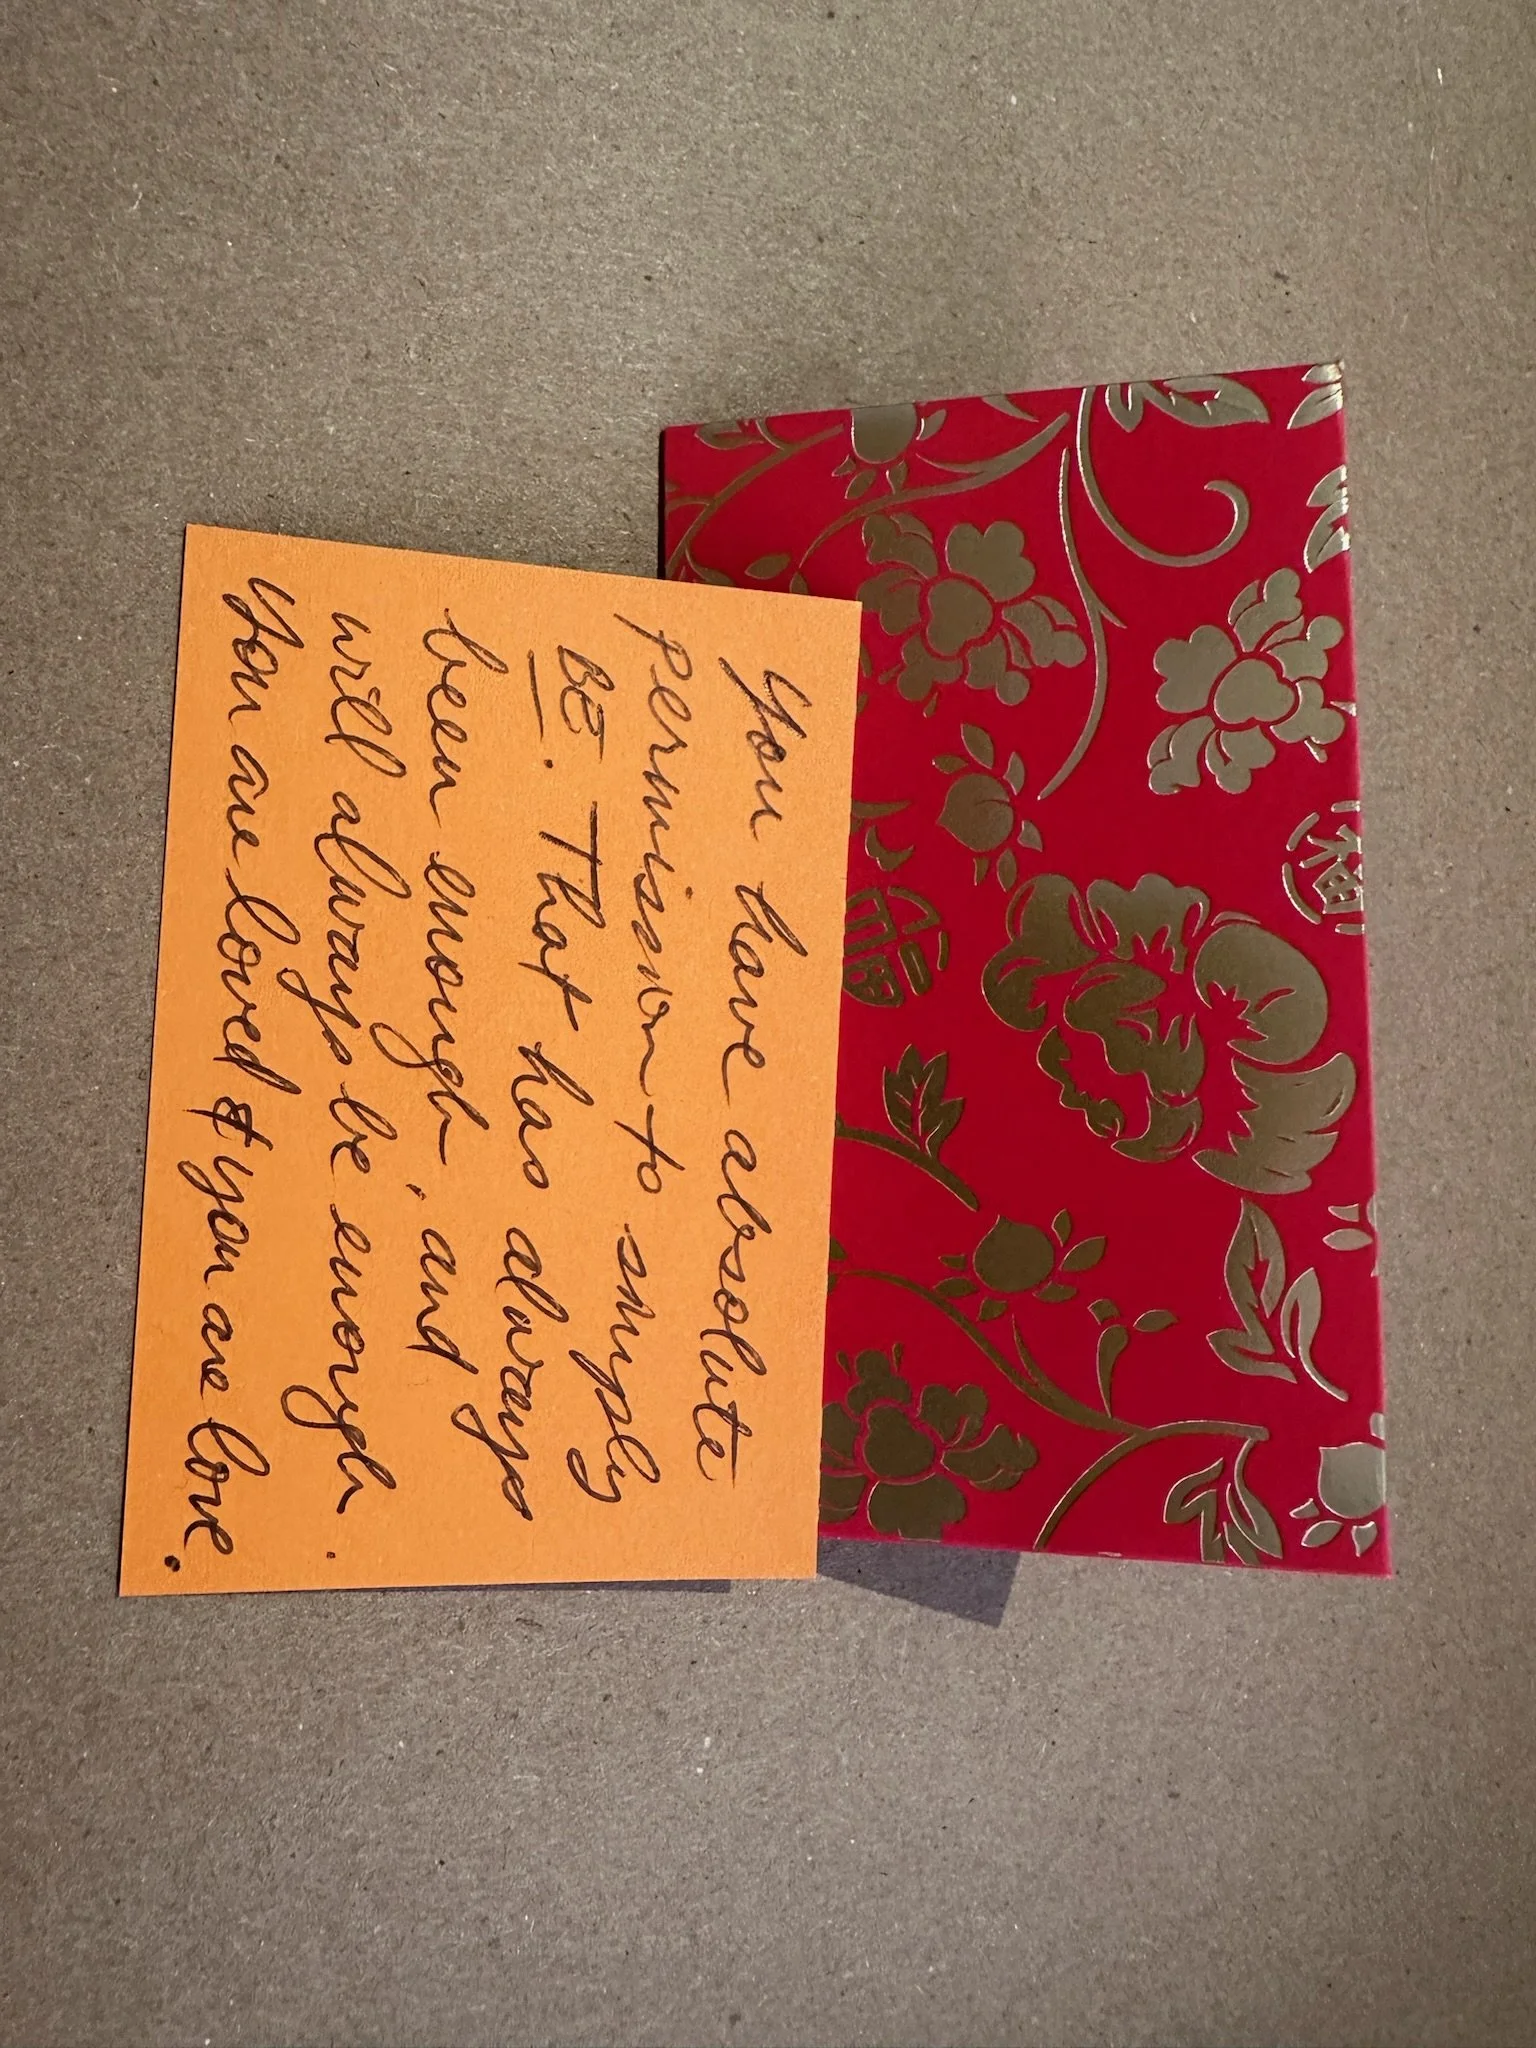 You have absolute
permission to simply
BE. That has always
been enough, and
will always be enough.
You are loved & you are love.
福
福